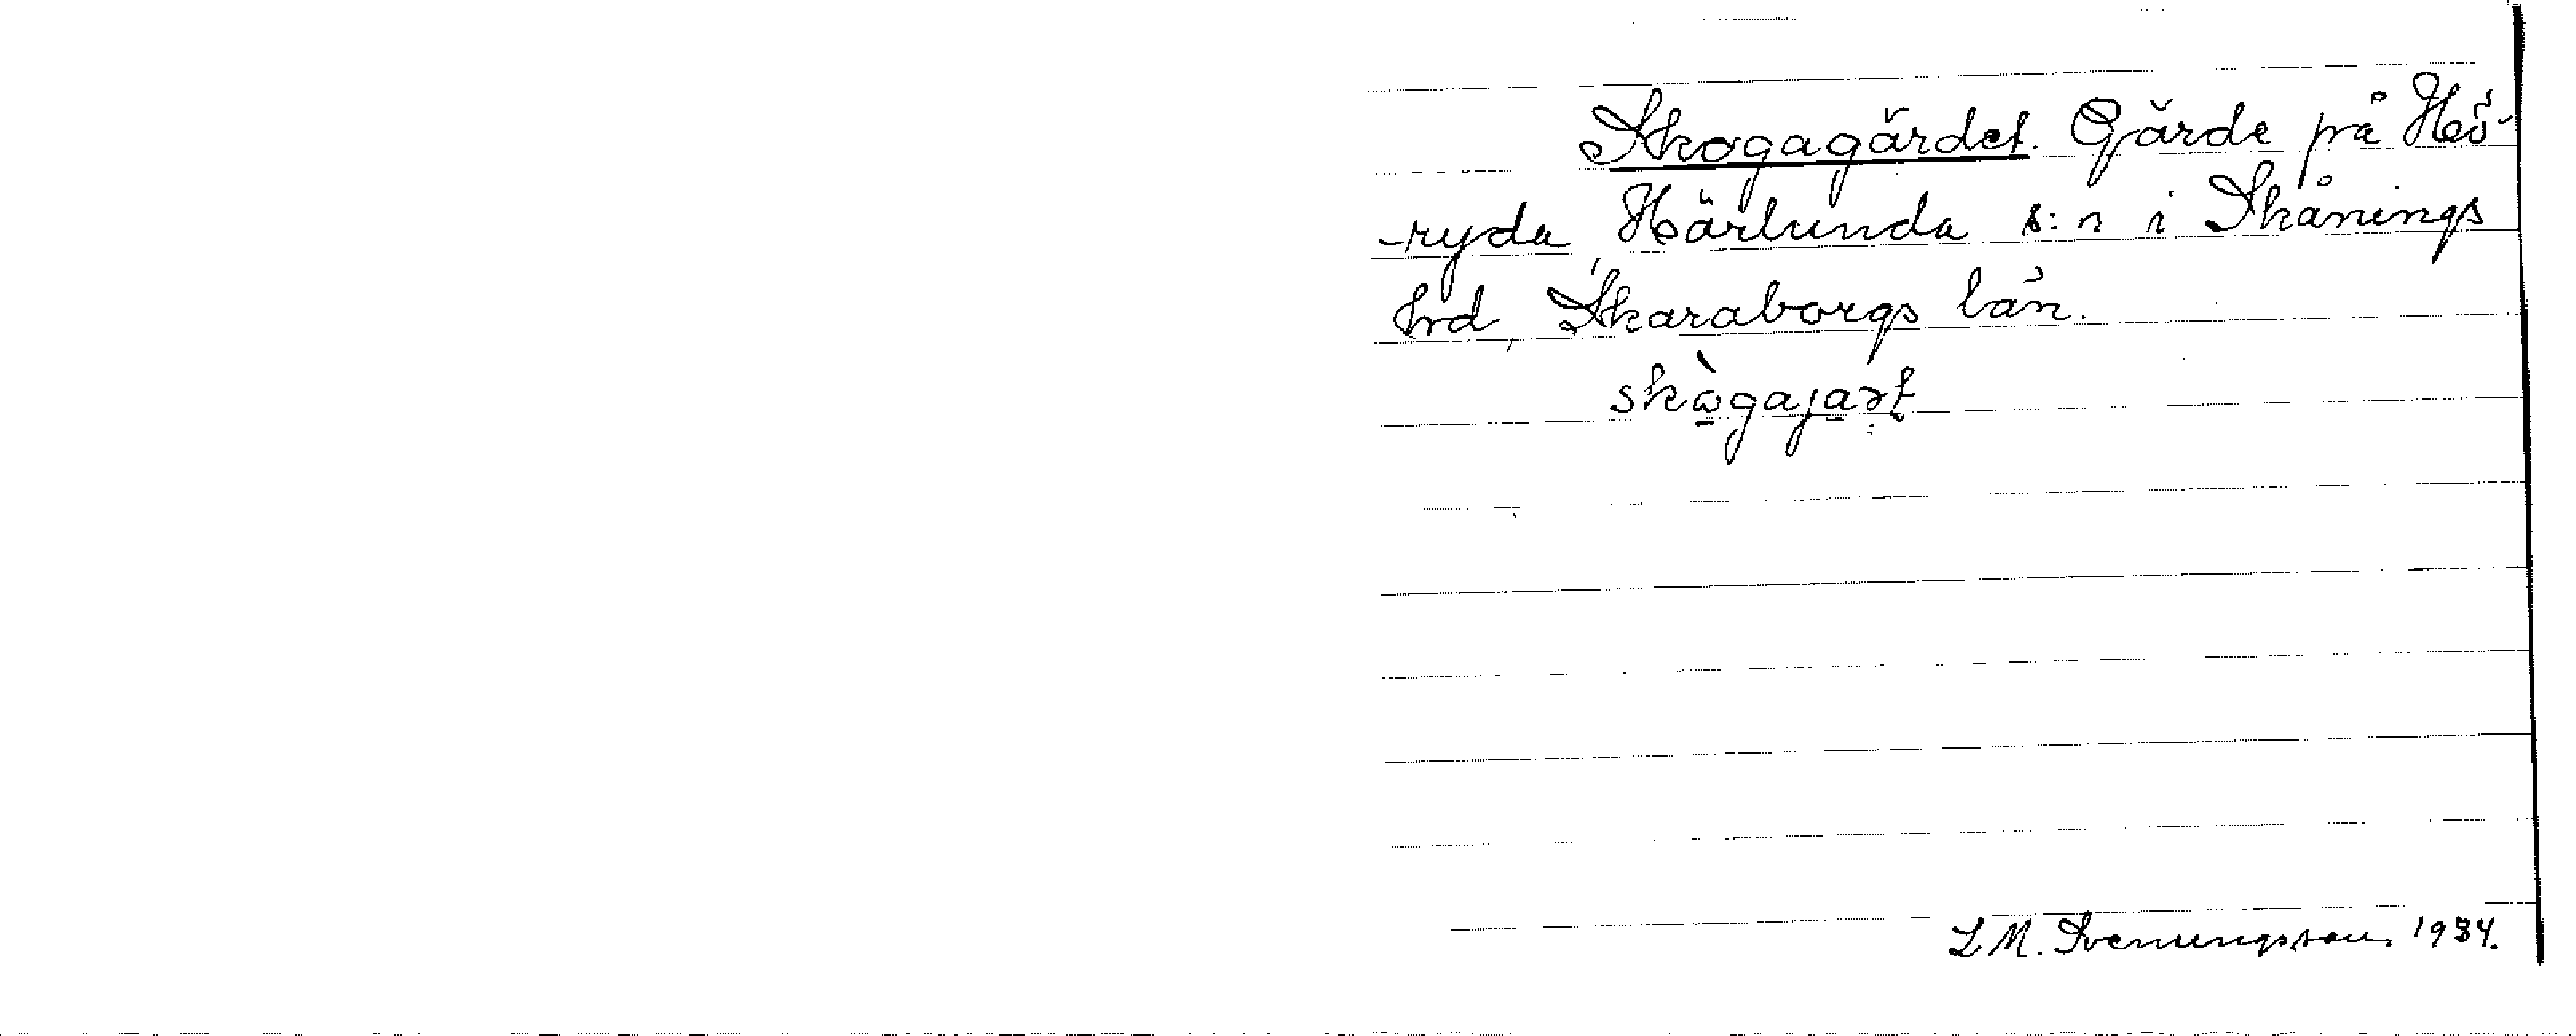 Skogagärdet. Gärde på Hö-
-ryda, Härlunda s:n i Skånings
hrd, Skaraborgs län.
skògajaṛt
L M. Svenungsson 1934.